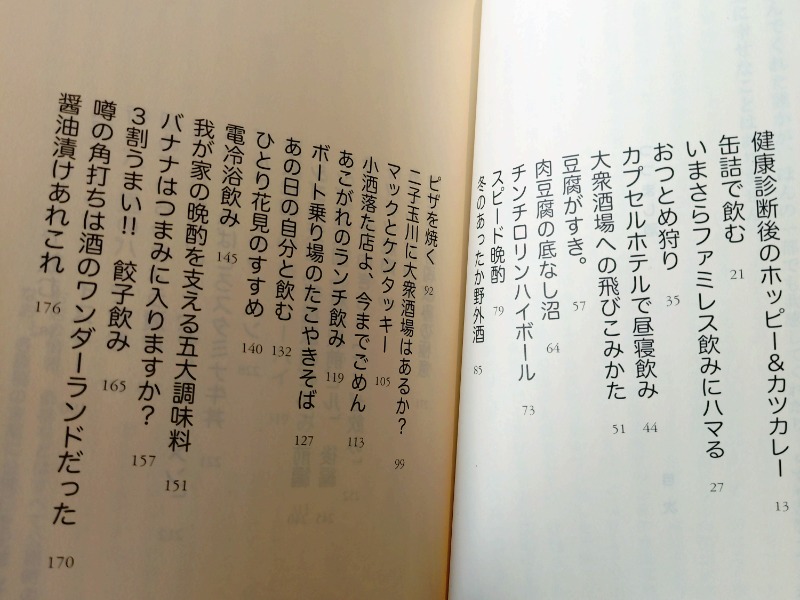 健康診断後のホッピー&カツカレー 13
缶詰で飲む 21
いまさらファミレス飲みにハマる 27
おつとめ狩り 35
カプセルホテルで昼寝飲み 44
大衆酒場への飛びこみかた 51
豆腐がすき。 57
肉豆腐の底なし沼 64
チンチロリンハイボール 73
スピード晩酌 79
冬のあったか野外酒 85
ピザを焼く 92
二子玉川に大衆酒場はあるか? 99
マックとケンタッキー 105
小洒落た店よ、今までごめん 113
あこがれのランチ飲み 119
ボート乗り場のたこやきそば 127
あの日の自分と飲む 132
ひとり花見のすすめ 140
電冷浴飲み 145
我が家の晩酌を支える五大調味料 151
バナナはつまみに入りますか? 157
3割うまい!! 餃子飲み 165
噂の角打ちは酒のワンダーランドだった 170
醤油漬けあれこれ 176